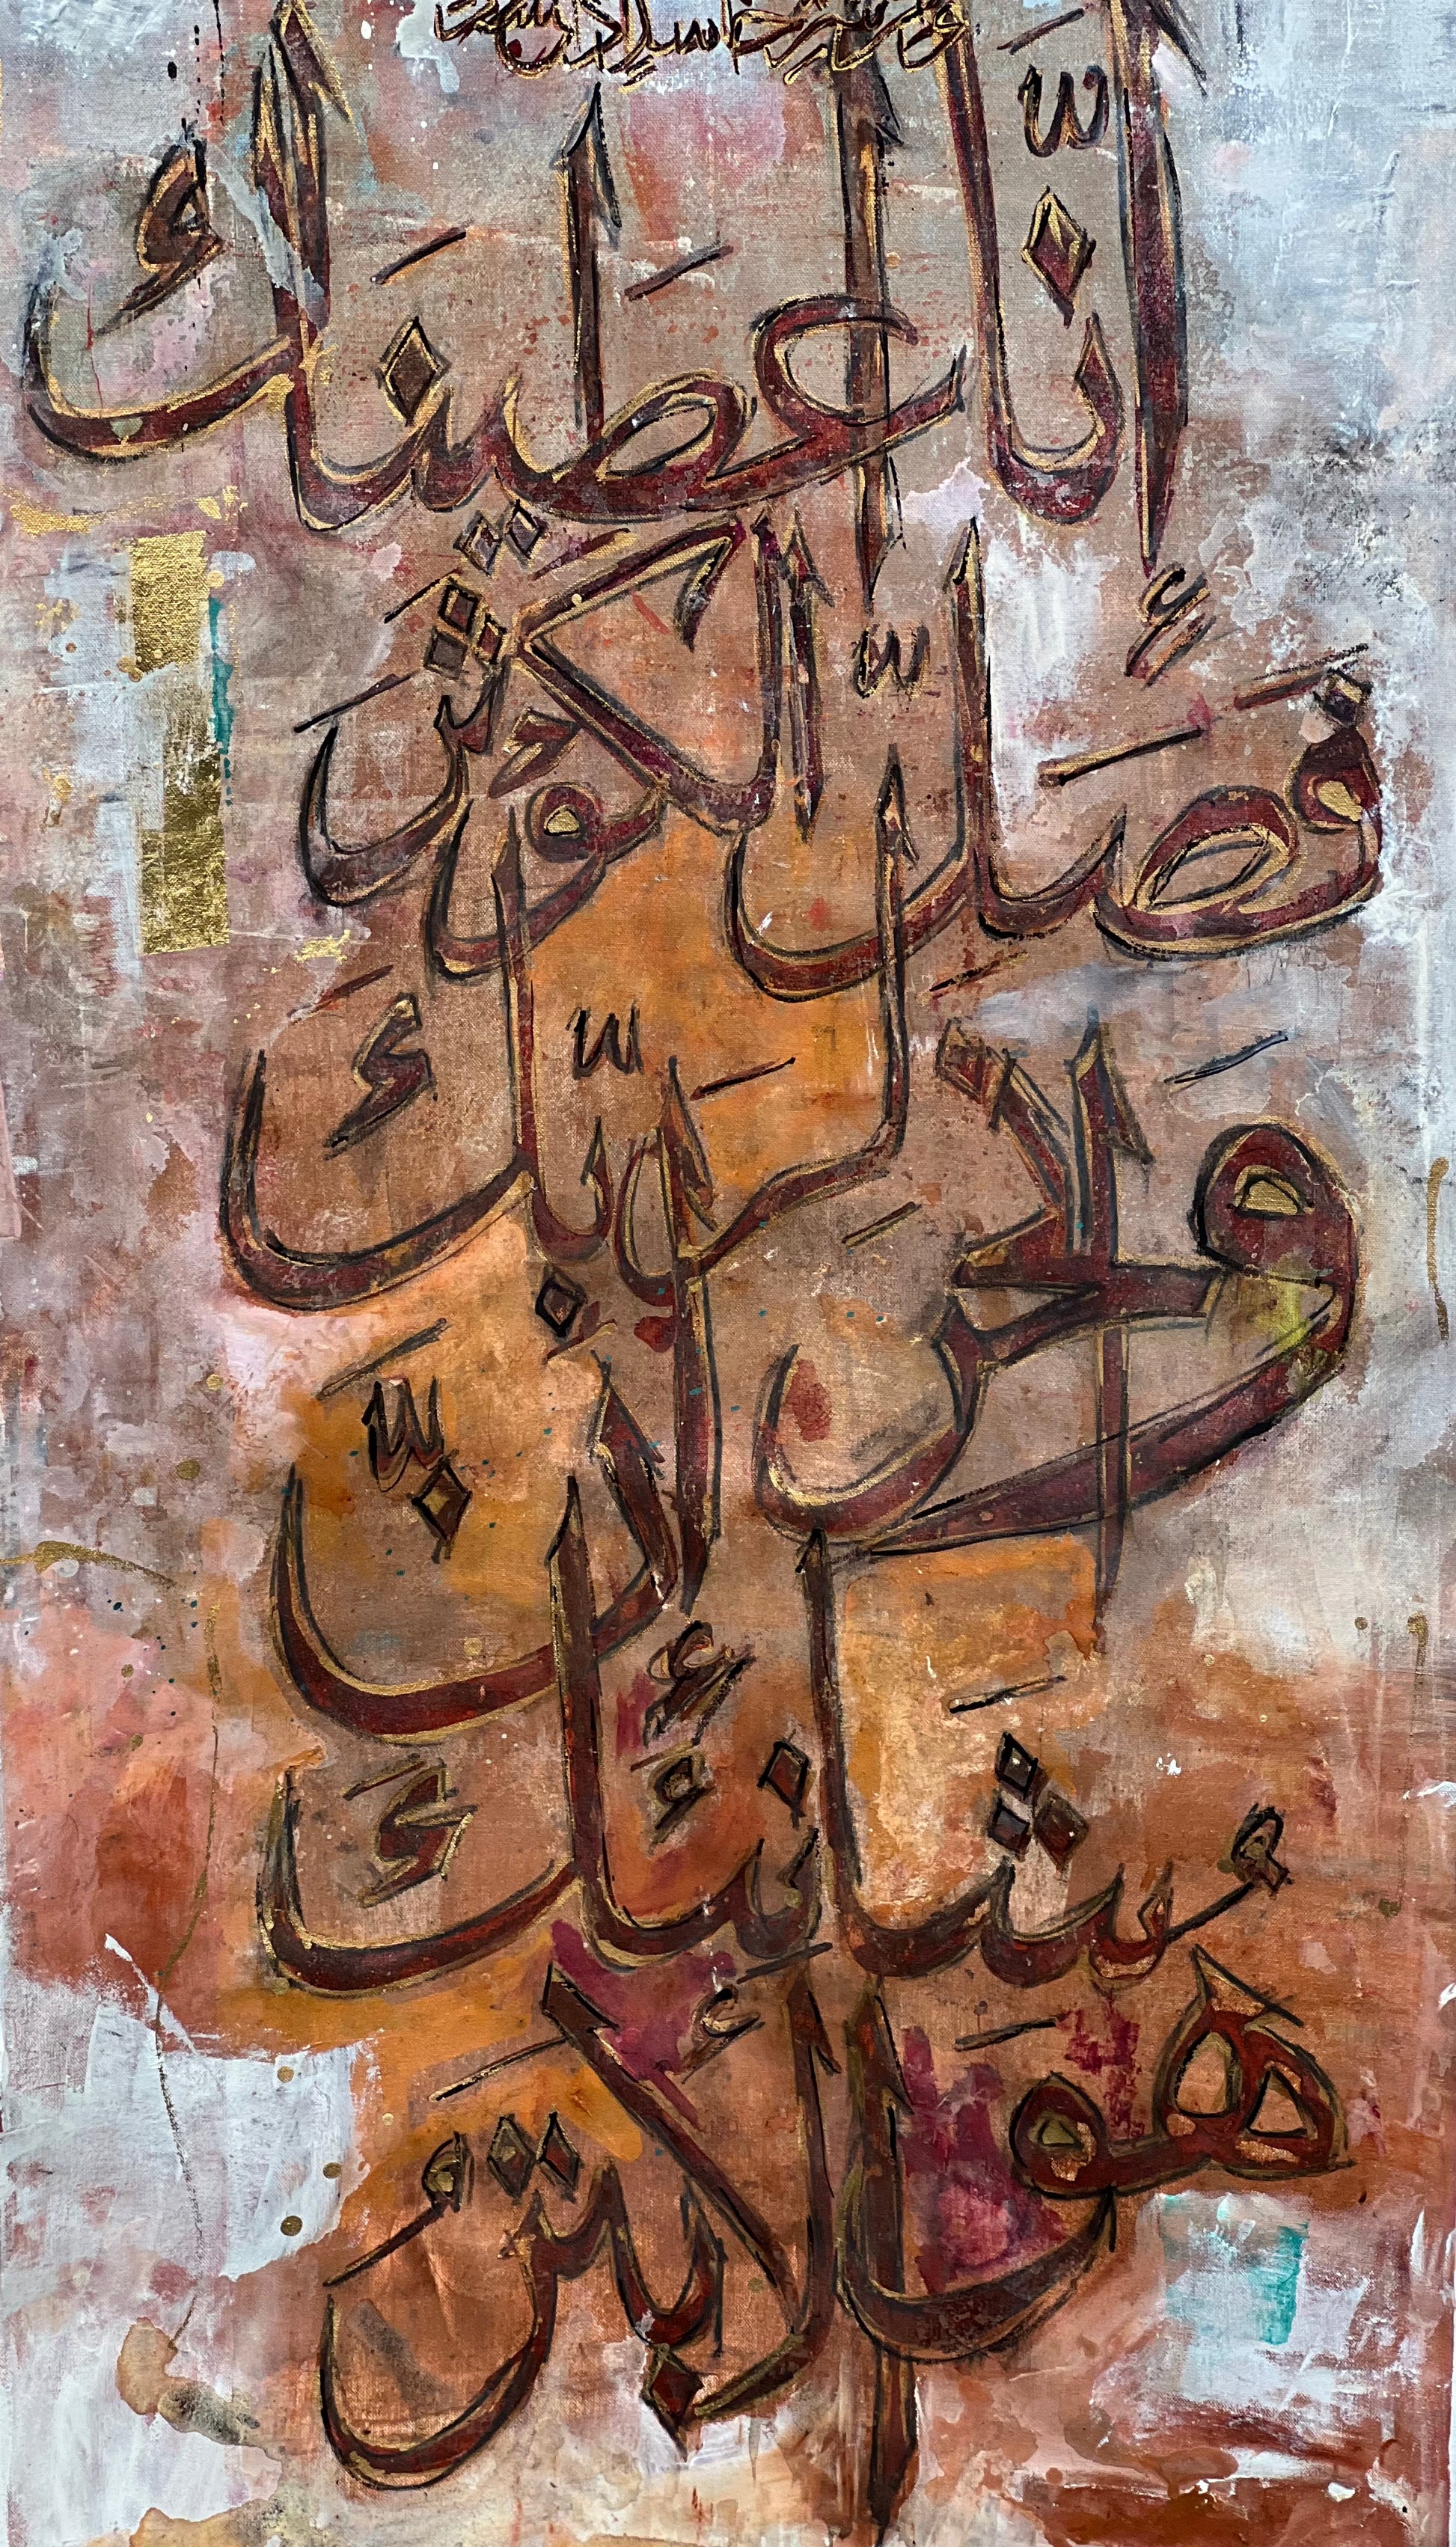 إنّا أعطَينَك
الكَوْثَرَ
فَصَلّ لرَبّكَ
وَانحَر
إنّ
شَانئَكَ
هُوَ الأَبتَرُ